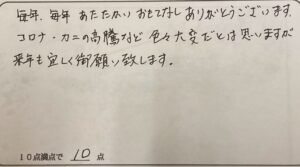 毎年、毎年 あたたかい おもてなし ありがとうございます。
コロナ・カニの高騰など 色々大変だとは思いますが
来年も宜しく御願い致します。
10点満点で 10 点